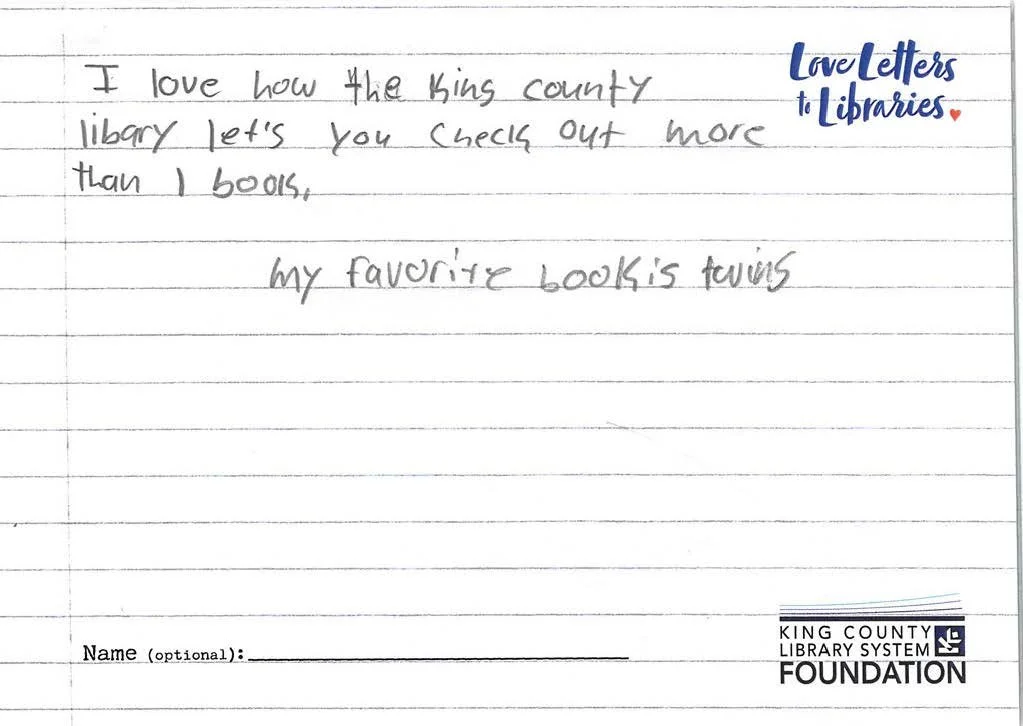 I love how the King county
libary let's you check out more
than 1 book,
my favorite book is twins
Love Letters
to Libraries.
Name (optional):
KING COUNTY
LIBRARY SYSTEM
FOUNDATION